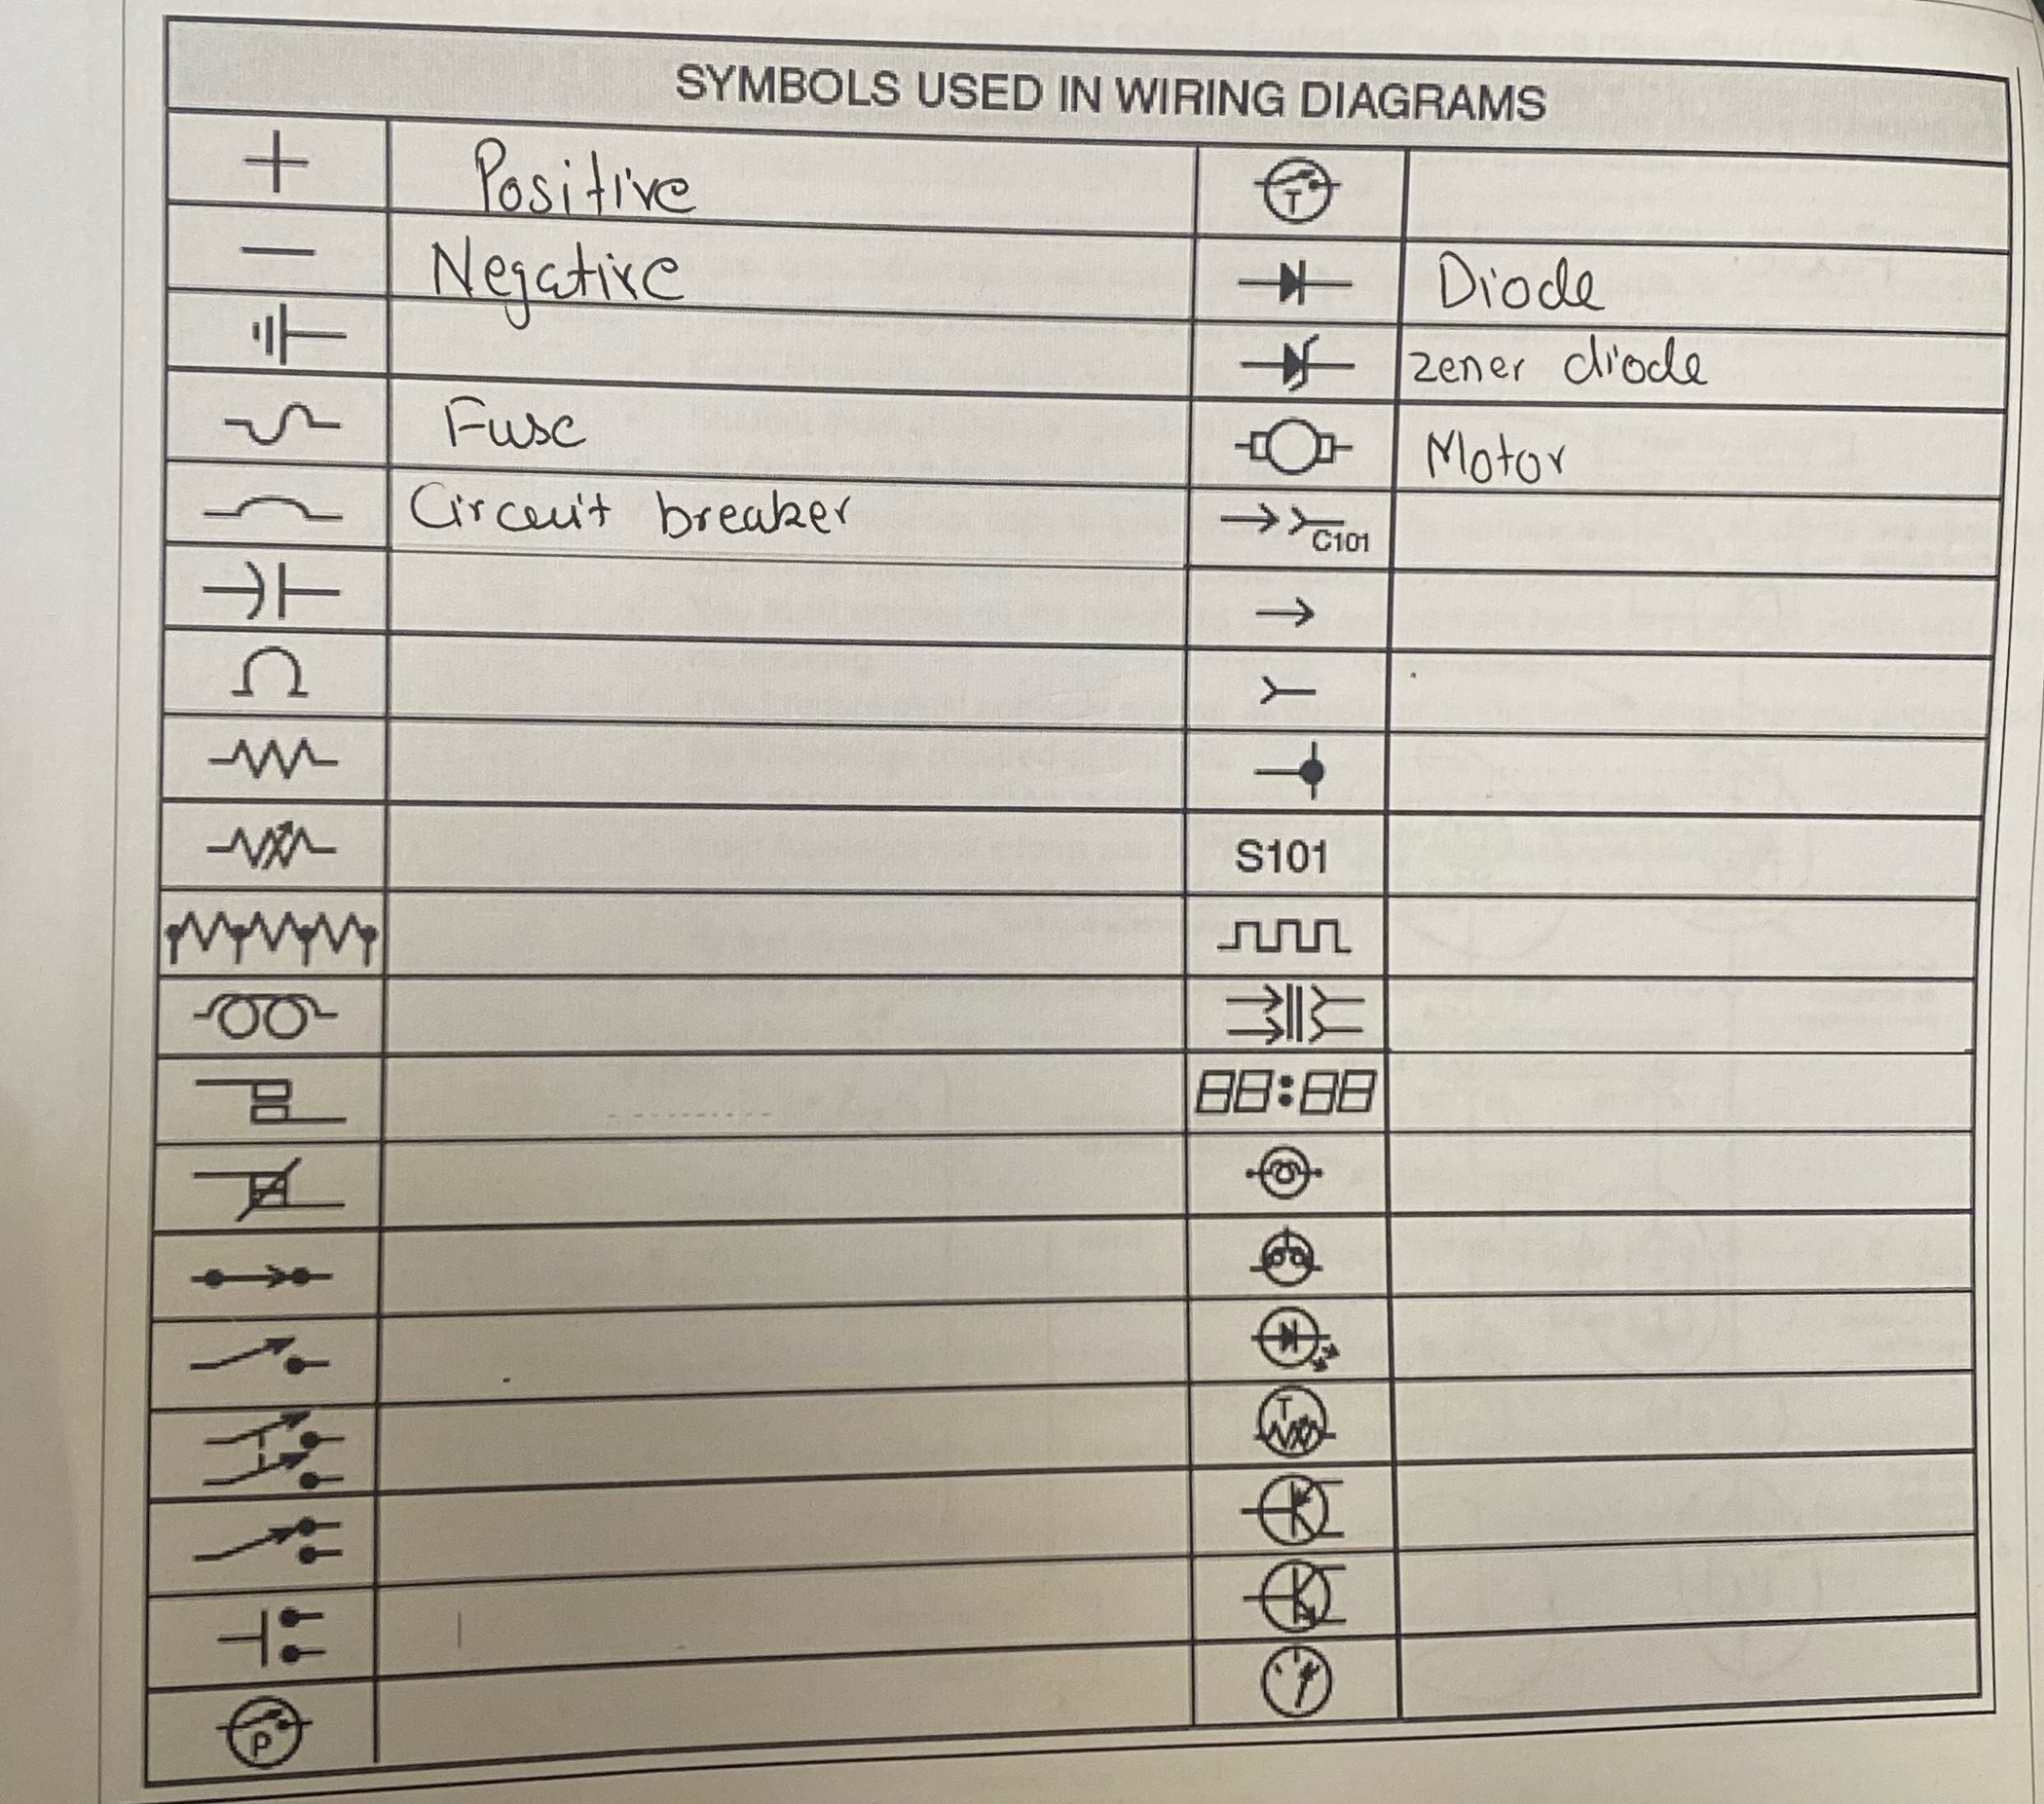 SYMBOLS USED IN WIRING DIAGRAMS
+ Positive
T
— Negative
Diode
zener diode
Fuse
Motor
Circuit breaker
C101
Ω
S101
88:88
T
P